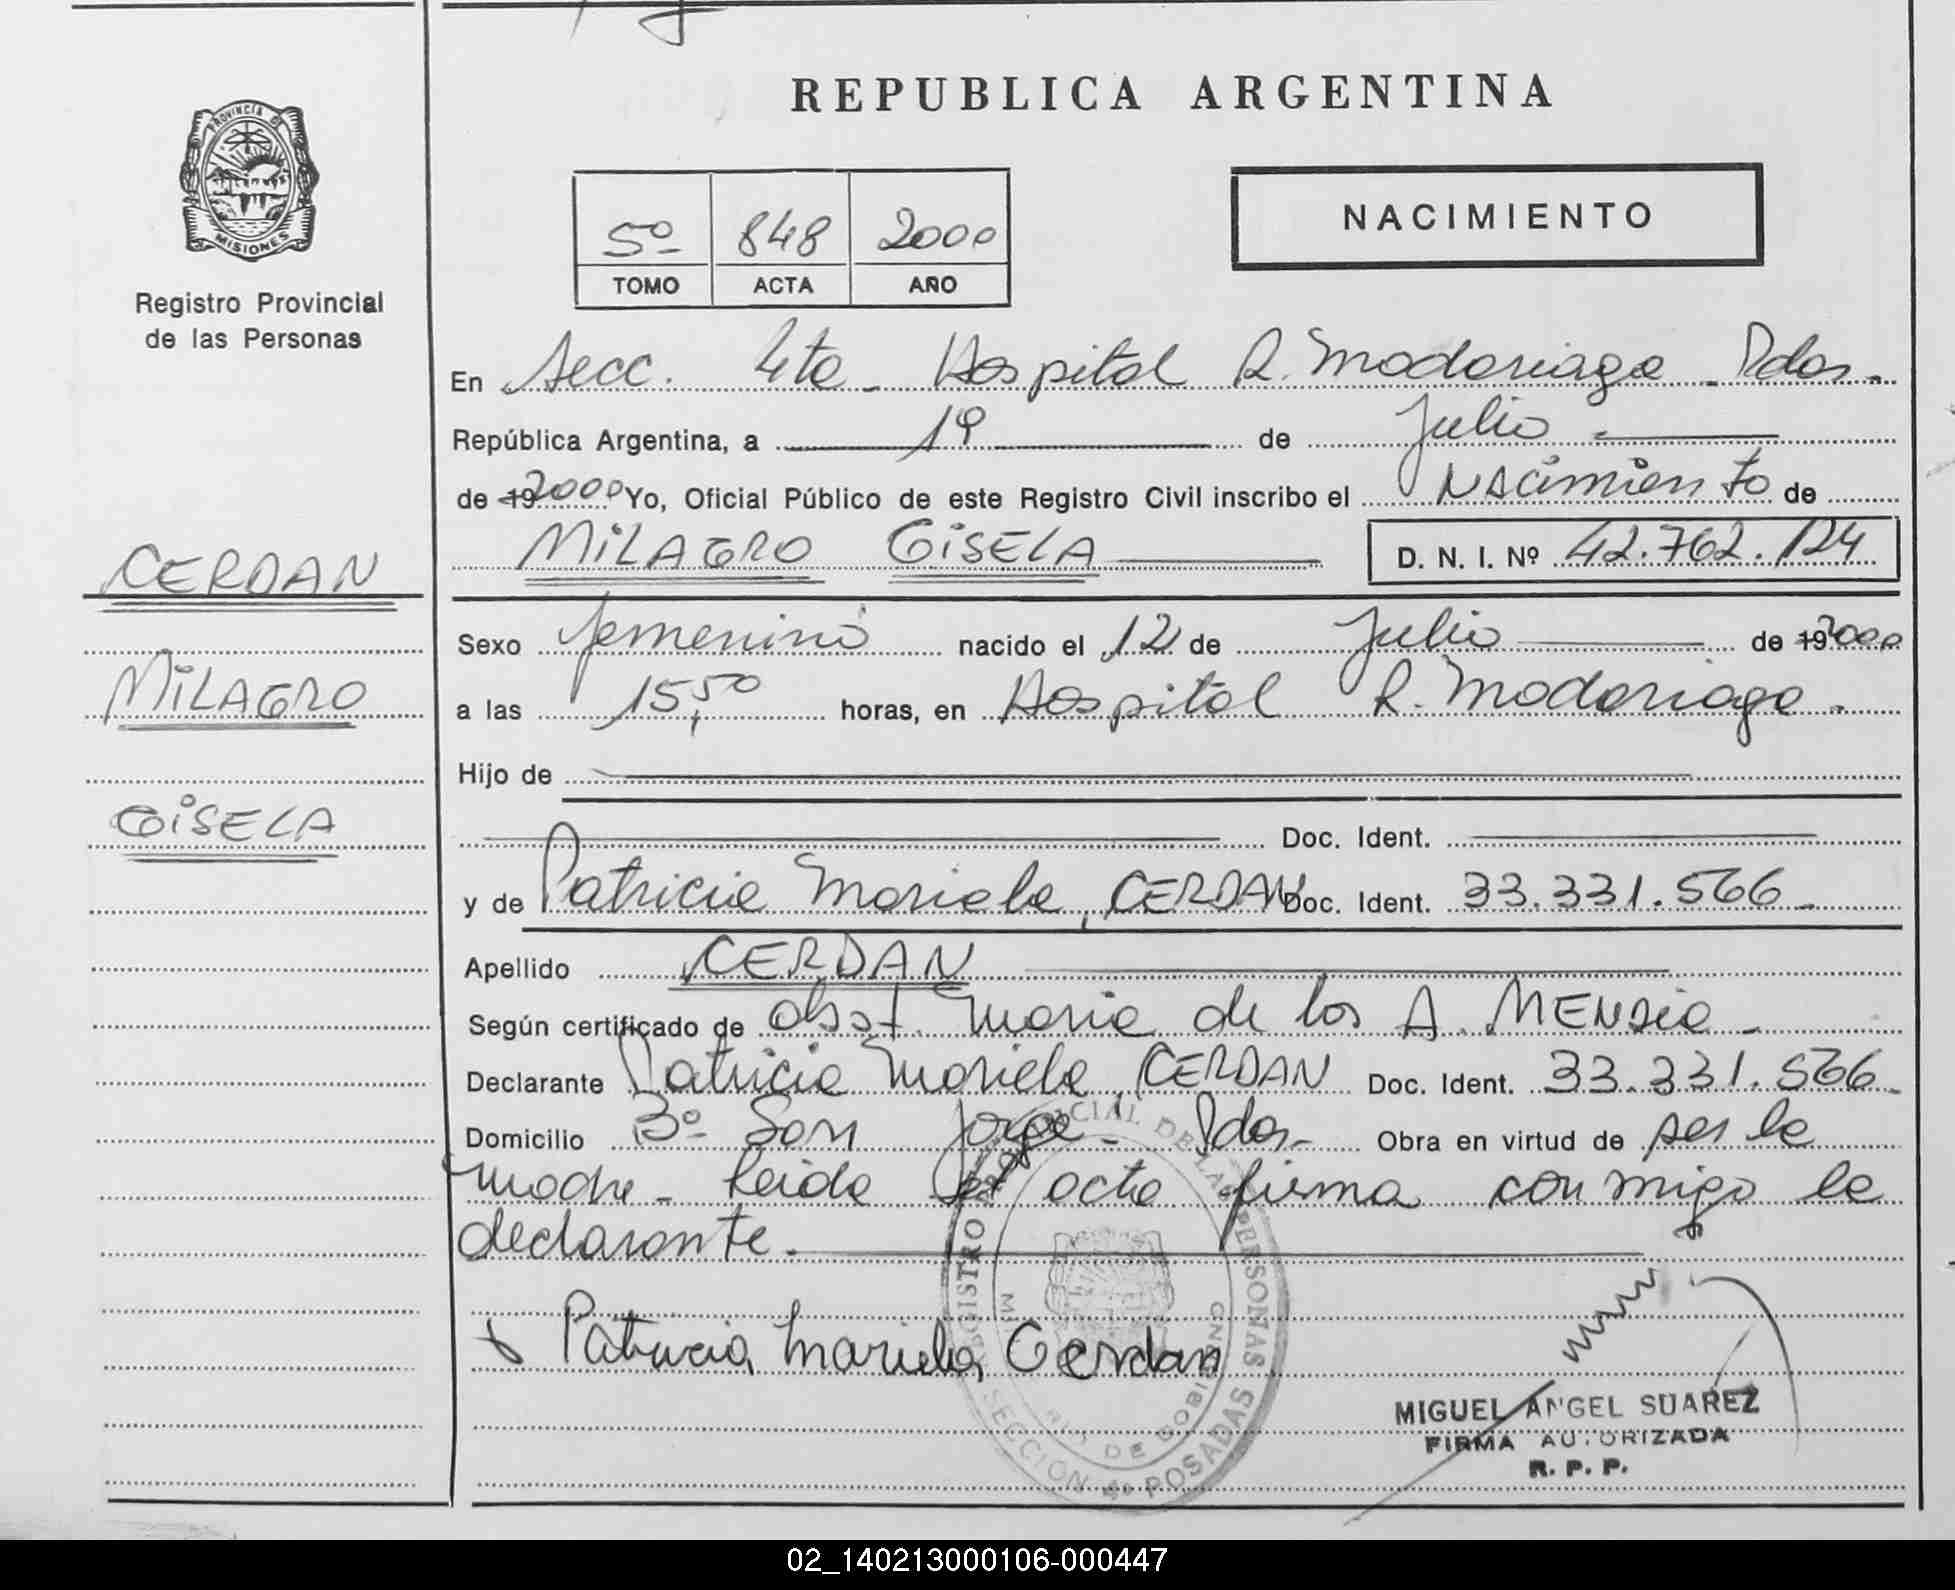 REPUBLICA ARGENTINA
PROVINCIA DE
MISIONES
Registro Provincial
de las Personas
5º 848 2000
TOMO ACTA AÑO
NACIMIENTO
En Secc. 4ta - Hospital R. Madariaga - Pdas.
República Argentina, a 19 de Julio
de 19 2000 Yo, Oficial Público de este Registro Civil inscribo el Nacimiento de
MiLAGRO GiSELA D. N. I. Nº 42.762.124
CERDAN
MiLAGRO
GiSELA
Sexo femenino nacido el 12 de Julio de 19 2000
a las 15,50 horas, en Hospital R. Madariaga.
Hijo de
Doc. Ident.
y de Patricia Mariela, CERDAN Doc. Ident. 33.331.566-
Apellido CERDAN
Según certificado de obst. Maria de los A.
Declarante Patricia Mariela, CERDAN Doc. Ident. 33.331.566-
Domicilio Bº San Jorge - Pdas- Obra en virtud de ser la
madre - leida el acta firma conmigo la
declarante.
Patricia Mariela Cerdan
REGISTRO PROVINCIAL DE LAS PERSONAS
SECCION 4º POSADAS
MIGUEL ANGEL SUAREZ
FIRMA AUTORIZADA
R. P. P.
02_140213000106-000447